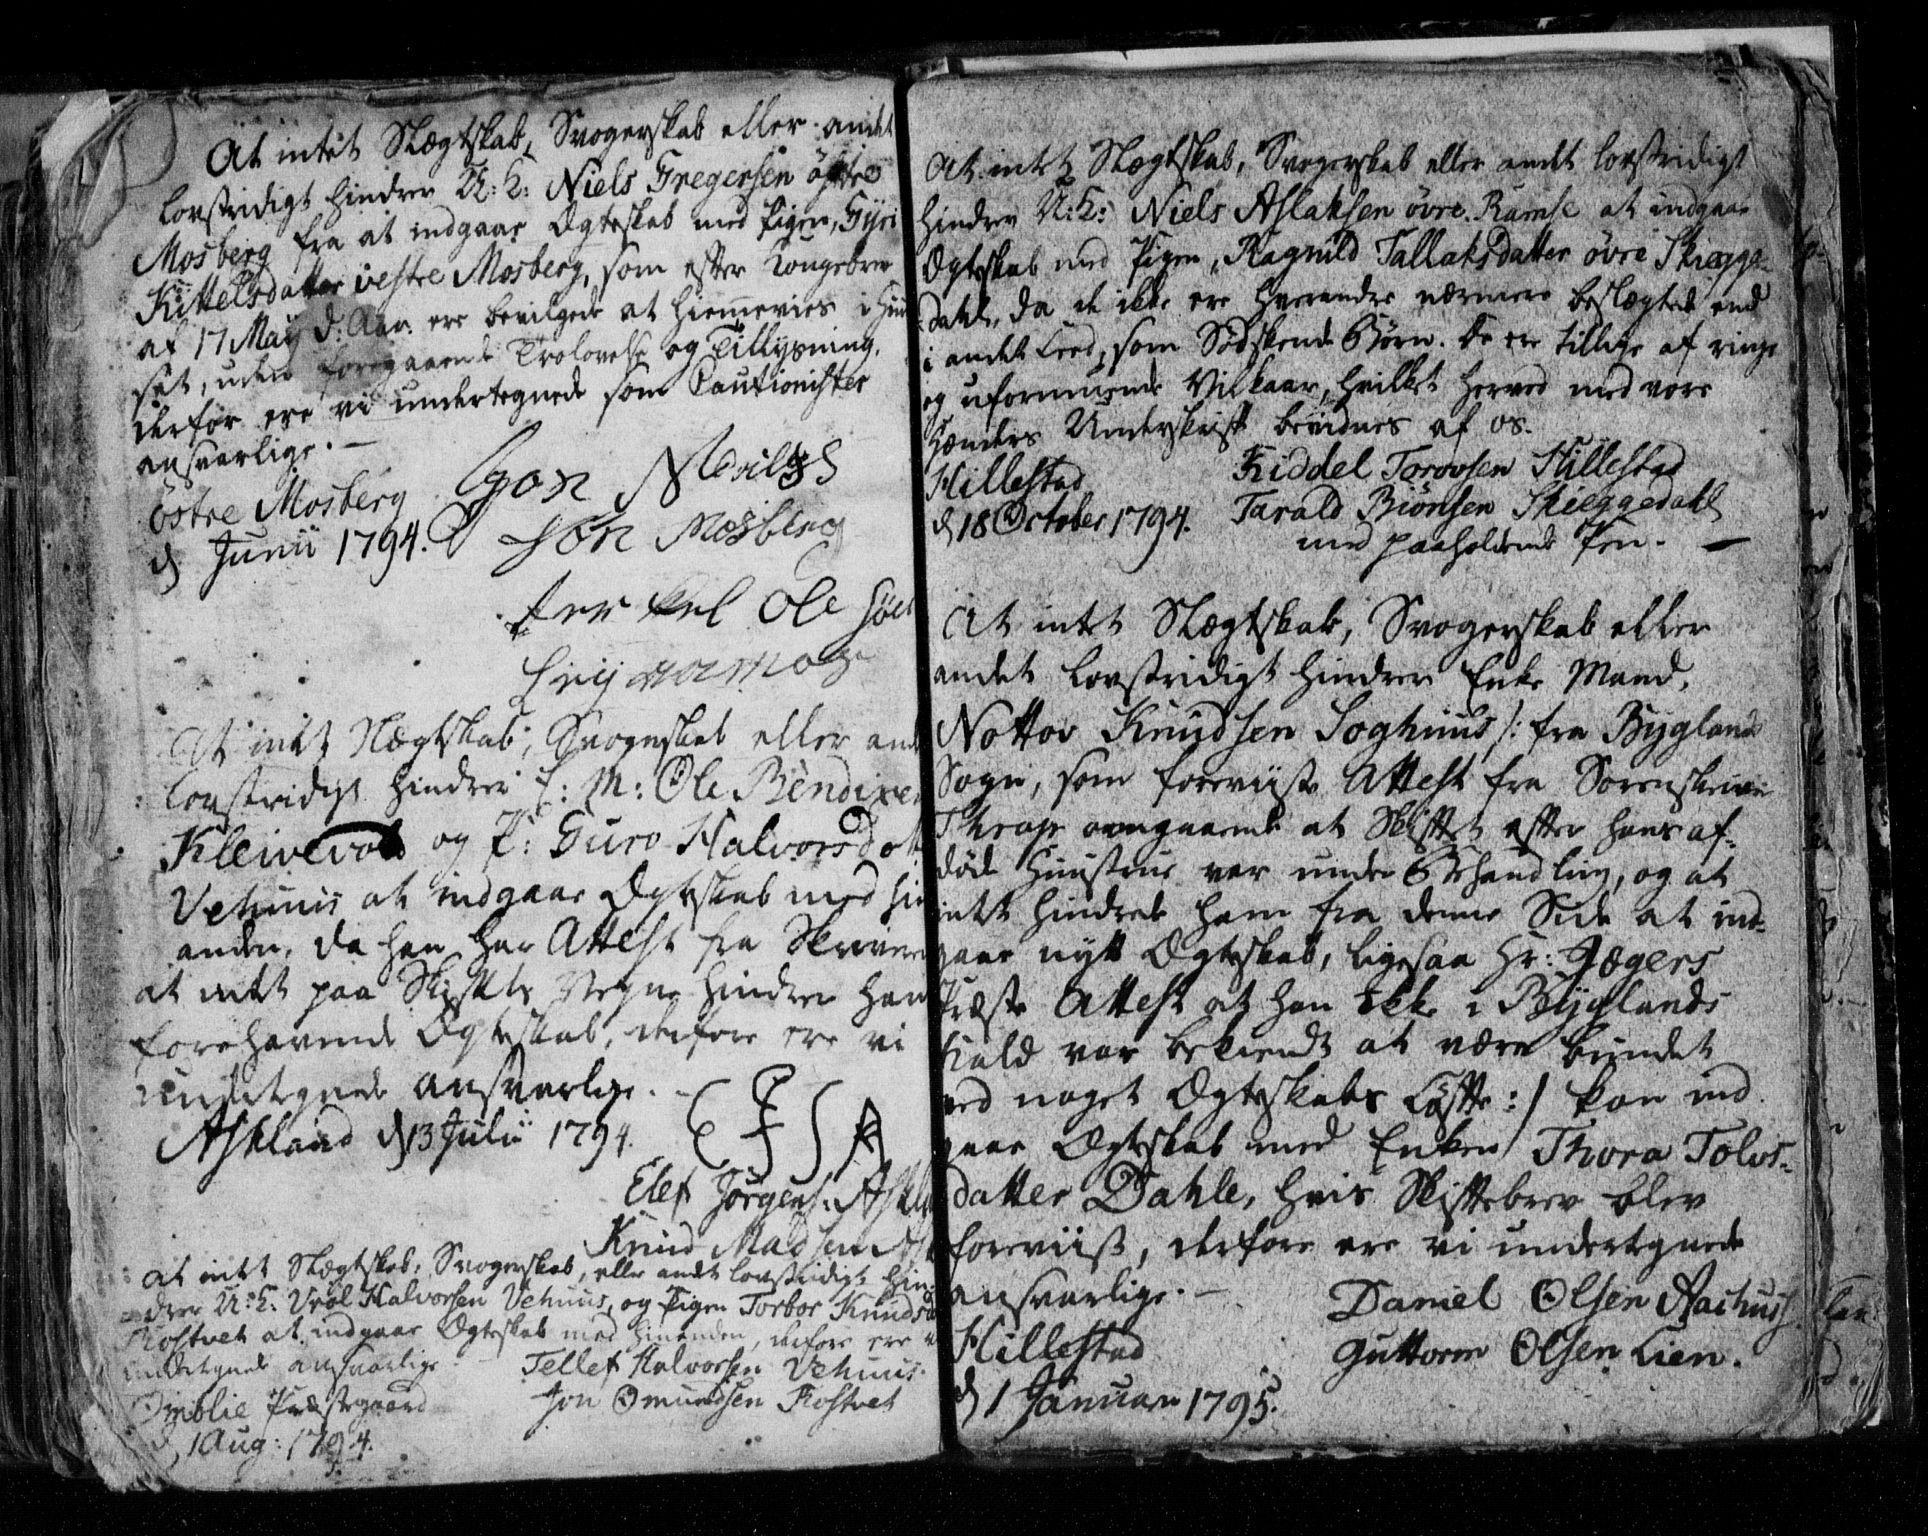 At intet Slægtskab, Svogerskab eller andet
lovstridigt hindrer U: K: Niels Gregersen östre
Mosberg fra at indgaae Ægteskab med Pigen, Gyri
Kittelsdatter vestre Mosberg, som efter Kongebrev
af 17 May d: Aar: ere bevilgede at hiemmevies i Huu
set, uden foregaaende Trolovelse og Tillysning,
derfor ere vi undertegnede som Cautionister
ansvarlige. —
östre Mosberg
d Junii 1794.
Jon Mosberg
Ole
At intet Slægtskab, Svogerskab eller andet
lovstridigt hindrer E: M: Ole Bendixen
Kleivevold og P: Guro Halvorsdatt
Vehuus at indgaae Ægteskab med hin
anden, da han har Attest fra Skriveren
at intet paa Skiftets Vegne hindrer hans
forehavende Ægteskab, derfore ere vi
undertegnede ansvarlige. –
Askland d 13 Julii 1794.
Elef Jörgens: Askl
Knud Madsen Ask
At intet Slægtskab, Svogerskab, eller andet lovstridigt hin-
drer U: K: Vrol Halvorsen Vehuus, og Pigen Torbor Knudsd
Rostvet at indgaae Ægteskab med hinanden, derfore ere vi
undertegnede ansvarlige.
Tellef Halvorsen Vehuus.
Jon Omundsen Rostvet
Omblie Præstegaard
d 1 Aug: 1794.
At intet Slægtskab, Svogerskab eller andet lovstridigt
hindrer U: K: Niels Aslaksen övre Ramse at indgaae
Ægteskab med Pigen, Ragnild Tallaksdatter övre Skiegge-
dahl, da de ikke ere hverandre nærmere beslægtede end
i andet Leed, som Södskende Börn. De ere tillige af ringe
og uformuende Vilkaar, hvilket herved med vore
Hænders Underskrift bevidnes af os.
Hillestad
d 18 October 1794.
Kiddel Torovsen Hillestad
Tarald Biörnsen Skieggedahl
med paaholdende Pen. —
At intet Slægtskab, Svogerskab eller
andet lovstridigt hindrer Enke Mand,
Nottov Knudsen Soghuus /: fra Byglands
Sogn, som foreviiste Attest fra Sorenskriver
angaaende at Skiftet efter hans af-
döde Huustrue var under Behandling, og at
intet hindrede ham fra denne Side at ind-
gaae nytt Ægteskab, ligesaa Hr: Jægers
Præste Attest at han ikke i Byglands
Kald var bekiendt at være bundet
ved noget Ægteskabs Löfte :/ kan ind
gaae Ægteskab med Enken Thora Tolvs-
datter Dahle, hvis Skiftebrev blev
foreviist, derfore ere vi undertegnede
ansvarlige. –
Hillestad
d 1 Januar 1795.
Daniel Olsen Aashuus
Guttorm Olsen Lien.